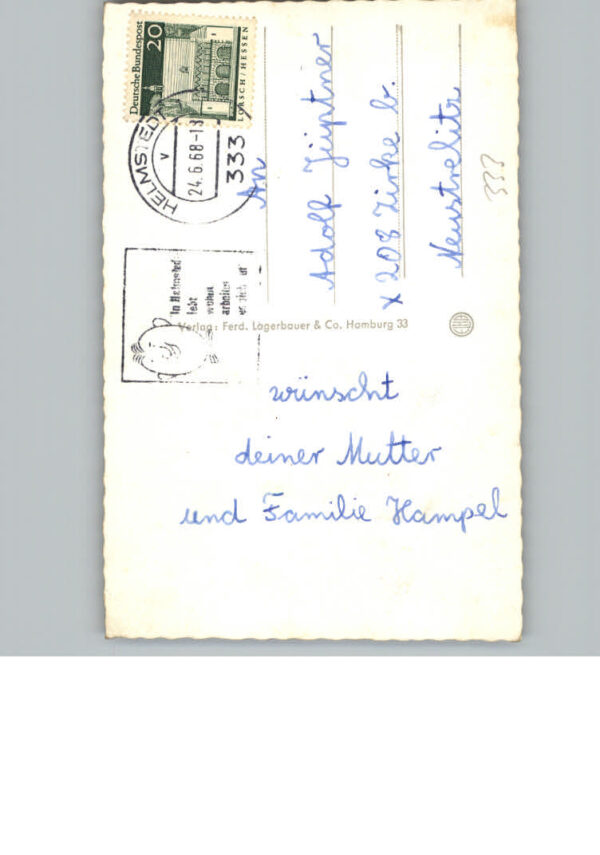 Deutsche Bundespost
20
LORSCH/HESSEN
HELMSTEDT
24.6.68-18
333
In Helmstedt
lebt
wohnt
An
Adolf Jüptner
x 208 Zirke b.
Neustrelitz
333
Verlag: Ferd. Lagerbauer & Co. Hamburg 33
wünscht
deiner Mutter
und Familie Hampel